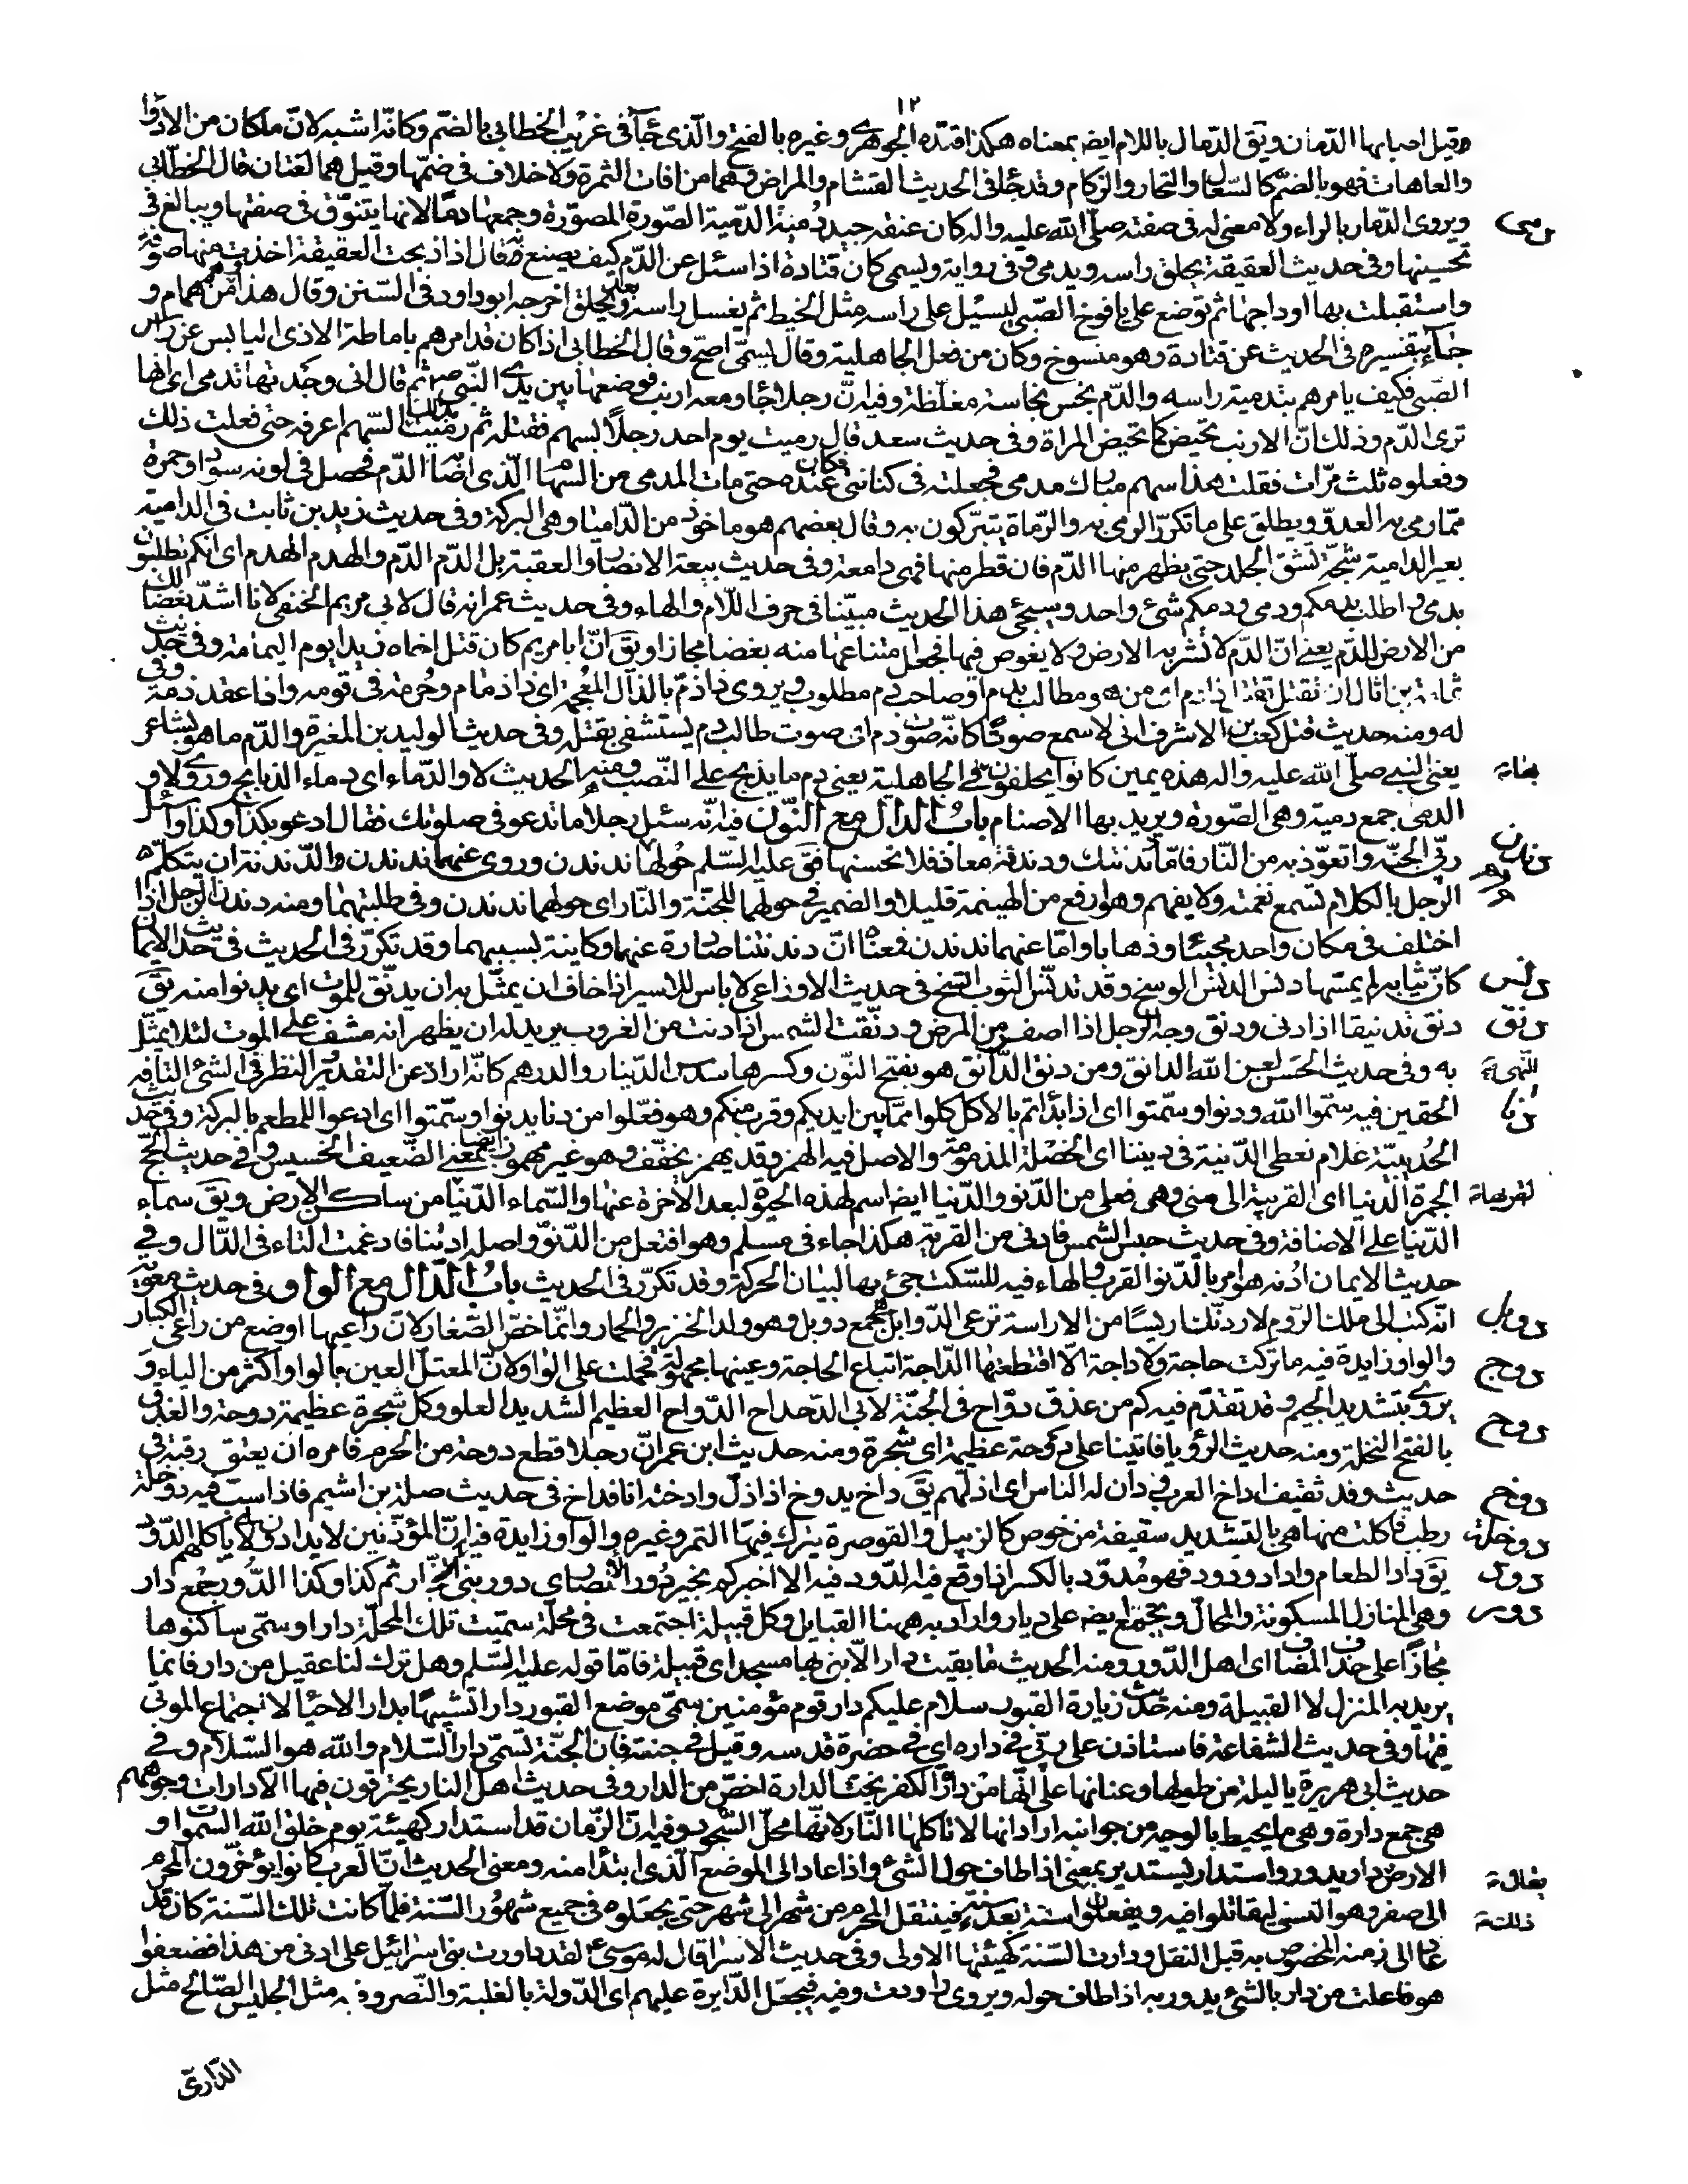 ١٢
وقيل اصابها الدّمان ويقَ الدّمال باللام ايضا بمعناه هكذا قيّده الجوهرى وغيره بالفتح والّذى جآءَ فى غريب الخطابى بالضّم وكانّه اشبه لانّ ماكان من الادوا
والعاهات فهو بالضمّ كالسّعال والنّحاز والزّكام وقد جاء فى الحديث القشام والمراض وهما من افات الثمرة ولاخلاف فى ضمّها وقيل هما لغتان قال الخطّابى
دمى
ويروى الدّمار بالراء ولا معنى له فى صفته صلّى اللّه عليه واله كان عنقه جيد دُمية الدّمية الصّورة المصوّرة وجمعها دمًا لانها يتنوّق فى صنعتها ويبالغ فى
تحسينها وفى حديث العقيقة يحلق راسه ويدمى وفى رواية ويسمى كان قتادة اذا سئل عن الدّم كيف يصنع به قال اذا ذبحت العقيقة اخذت منها صوفة
واستقبلت بها اوداجها ثم توضع على يافوخ الصّبى ليسيل على راسه مثل الخيط ثم يغسل راسه بعد ويحلق اخرجه ابو داود فى السّنن وقال هذا وهم من همام و
جآء بتفسيره فى الحديث عن قتادة وهو منسوخ وكان من فعل الجاهلية وقال يسمّى اصحّ وقال الخطابى اذا كان قد امرهم باماطة الاذى اليابس عن راس
الصّبى فكيف يامرهم بتدمية راسه والدّم نجس نجاسة مغلّظة وفيه انّ رجلا جاء ومعه ارنب فوضعها بين يدى النّبى ص ثم قال انى وجدتها تدمى اى انها
ترى الدّم وذلك انّ الارنب تحيض كما تحيض المراة وفى حديث سعد قال رميت يوم احد رجلاً بسهم فقتلته ثم رميت بذلك السّهم اعرفه حتى فعلت ذلك
وفعلوه ثلث مرّات فقلت هذا سهم مبارك مدمى فجعلته فى كنانتى فكان عنده حتى مات المدمى من السهام الّذى اصابه الدّم فحصل فى لونه سواد وحمرة
ممّا رمى به العدوّ ويطلق على ما تكرّر الرمى به والرّماة يتبرّكون به وقال بعضهم هو ماخوذ من الدّامياء وهى البركة وفى حديث زيد بن ثابت فى الدامية
بعير الدامية شجّة تشقّ الجلد حتى يظهر منها الدّم فان قطر منها فهى دامعة وفى حديث بيعة الانصار والعقبة بل الدّم الدّم والهدم الهدم اى انكم تطلبون
بدمى واطلب بدمكم ودمى ودمكم شئ واحد وسيجئ هذا الحديث مبيّنا فى حرف اللّام والهاء وفى حديث عمر انه قال لابى مريم الحنفى لانا اشدّ بغضا لك
من الارض للدّم يعنى انّ الدّم لا تشربه الارض ولا يغوص فيها فجعل امتناعها منه بغضا مجازا ويقَ انّ ابا مريم كان قتل اخاه زيدا يوم اليمامة وفى حديث
ثمامة بن اثال ان تقتل تقتل ذا دم اى من هو مطالب بدم او صاحب دم مطلوب ويروى ذا ذمّ بالذال المعجمة اى ذا ذمام وحُرمة فى قومه واذا عقد ذمة وفى
له ومنه حديث قتل كعب بن الاشرف انى لاسمع صوتًا كانّه صوت دم اى صوت طالب دم يستشفى بقتله وفى حديث الوليد بن المغيرة والدّم ما هو بشاعر
يعنى النبى صلّى اللّه عليه واله هذه يمين كانوا يحلفون بها فى الجاهلية يعنى دم ما يذبح على النّصب ومنه الحديث لا والدّماء اى دماء الذبايح وروى لا و
الدمى جمع دمية وهى الصّورة ويريد بها الاصنام بابُ الدال مع النّون فيه انّه سئل رجلا ما تدعو فى صلوتك فقال ادعو بكذا وكذا واسئل
دندن
ربّى الجنّة واتعوّذ به من النّار فامّا دندنتك ودندنة معاذ فلا نحسنها فقَ عليه السّلم حولهما ندندن وروى عنهما ندندن والدّندنة ان يتكلّم
الرّجل بالكلام تسمع نغمته ولا يفهم وهو ارفع من الهينمة قليلا والضمير فى حولهما للجنّة والنّار اى حولهما ندندن وفى طلبتهما ومنه دندن الرّجل اذا
اختلف فى مكان واحد مجيئا وذهابا وامّا عنهما ندندن فمعناه انّ دندنتنا صادرة عنهما وكاينة بسببهما وقد تكرّر فى الحديث فى حديث الايمان
دنس
كانّ ثيابه لم يمسّها دنس الدنس الوسخ وقد تدنّس الثوب اتّسخ فى حديث الاوزاعى لا باس للاسير اذا خاف ان يمثّل به ان يدنّق للموت اى يدنوا منه يقَ
دنق
دنق تدنيقا اذا دنى ودنق وجه الرّجل اذا اصفر من المرض ودنّقت الشمس اذا دنت من الغروب يريد له ان يظهر انه مشف على الموت لئلا يمثّل
به وفى حديث الحَسن لعن اللّه الدانق ومن دنق الدّانق هو بفتح النّون وكسرها سدس الدّينار والدرهم كانّه اراد عن التقدير والنظر فى الشئ التافه
دنا
الحقير فيه سمّوا اللّه ودنوا وسمّتوا اى اذا بدأتم بالاكل كلوا ممّا بين ايديكم وقرب منكم وهو فعّلوا من دنا يدنوا وسمّتوا اى ادعوا للمطعم بالبركة وفى حديث
الحُديبيّة علام نعطى الدّنية فى ديننا اى الخصلة المذمومة والاصل فيه الهمز وقد يهمز ويخفّف وهو غير مهموز ايضا بمعنى الضّعيف الخسيس وفى حديث الحجّ
الجمرة الدّنيا اى القريبة الى منى وهى فعلى من الدّنو والدّنيا ايضا اسم لهذه الحيوة لبعد الآخرة عنها والسّماء الدّنيا من ساكن الارض ويقَ سماء
الدّنيا على الاضافة وفى حديث حبس الشمس فادنى من القرية هكذا جاء فى مسلم وهو افتعل من الدّنوّ واصله ادتنا فادغمت التاء فى الدّال وفى
حديث الايمان ادُنه هو امر بالدّنو القرب والهاء فيه للسّكت جئ بها لبيان الحركة وقد تكرّر فى الحديث بابُ الدّال مع الواو فى حديث معوية
دوبل
انّه كتب الى ملك الرّوم لاردّنّك اريسًا من الاراسة ترعى الدّوابل هى جمع دوبل وهو ولد الخنزير والحمار وانّما خصّ الصّغار لانّ راعيها اوضع من راعى الكبار
دوج
والواو زايدة فيه ما تركت حاجة ولا داجة الّا اقتطعتها الدّاجة اتباع الحاجة وعينها مجهولة فحملت على الواو ولانّ المعتل العين بالواو اكثر من الياء و
دوح
يروى بتشديد الجيم وقد تقدّم فيه كم من عذق دوّاح فى الجنّة لابى الدّحداح الدّواح العظيم الشديد العلو وكل شجرة عظيمة دوحة والعذق
بالفتح النخلة ومنه حديث الرؤيا فاتينا على دوحة عظيمة اى شجرة ومنه حديث ابن عمر انّ رجلا قطع دوحة من الحرم فامره ان يعتق رقبة فى
دوخ
حديث وفد ثقيف اداخ العرب ودان له الناس اى اذلّهم يقَ داخ يدوخ اذا ذلّ وادخته انا فداخ فى حديث صلة بن اشيم فاذا سبّ فيه دوخلة
دوخلة
رطب فاكلت منها هى بالتشديد سقيفة من خوص كالزبيل والقوصرة يترك فيها التمر وغيره والواو زايدة فيه انّ المؤذّنين لايدادون اى لا ياكلهم الدّود
دود
يقَ داد الطعام واداد ودود فهو مُدوّد بالكسر اذا وقع فيه الدّود فيه الا اخبركم بخير دُور الانصار اى دور بنى النجّار ثم كذا وكذا الدُّور جمع دار
دور
وهى المنازل المسكونة والمحالّ ويجمع ايضا على ديار واراد به ههنا القبايل وكل قبيلة اجتمعت فى محلّة سمّيت تلك المحلّة دارا وسمّى ساكنوها
مجازًا على حذف المضاف اى اهل الدّور ومنه الحديث ما بقيت دار الّا بنى بها مسجد اى قبيلة فامّا قوله عليه السّلم وهل ترك لنا عقيل من دار فانما
يريد به المنزل لا القبيلة ومنه حديث زيارة القبور سلام عليكم دار قوم مؤمنين سمّى موضع القبور دارا تشبيهًا بدار الاحياء لاجتماع الموتى
فيها وفى حديث الشفاعة فاستاذن على ربّى فى داره اى فى حضرة قدسه وقيل فى جنته فان الجنّة تسمّى دار السّلام واللّه هو السّلام وفى
حديث ابى هريرة يا ليلة من طولها وعنائها على انّها من دارة الكفر نجّت الدارة اخصّ من الدار وفى حديث اهل النار يحترقون فيها الّا دارات وجوههم
هى جمع دارة وهى ما يحيط بالوجه من جوانبه اراد انها لا تاكلها النّار لانّها محلّ السّجود وفيه انّ الزّمان قد استدار كهيئة يوم خلق اللّه السّموات و
الارض دار يدور واستدار يستدير بمعنى اذا طاف حول الشئ واذا عاد الى الموضع الّذى ابتدأ منه ومعنى الحديث انّ العرب كانوا يؤخّرون المحرم
الى صفر وهو النسئ ليقاتلوا فيه ويفعلون سنة بعد سنة فينتقل المحرم من شهر الى شهر حتى يجعلوه فى جميع شهور السّنة فلمّا كانت تلك السّنة كان قد
عاد الى زمنه المخصوص به قبل النقل ودارت السّنة كهيئتها الاولى وفى حديث الاسراء قال له موسى ع لقد داورت بنى اسرائيل على ادنى من هذا فضعفوا
هو فاعلت من دار بالشئ يدور به اذا طاف حوله ويروى راودت وفيه فيجعل الدّايرة عليهم اى الدّولة بالغلبة والنّصر وفيه مثل الجليس الصّالح مثل
الدّارىّ